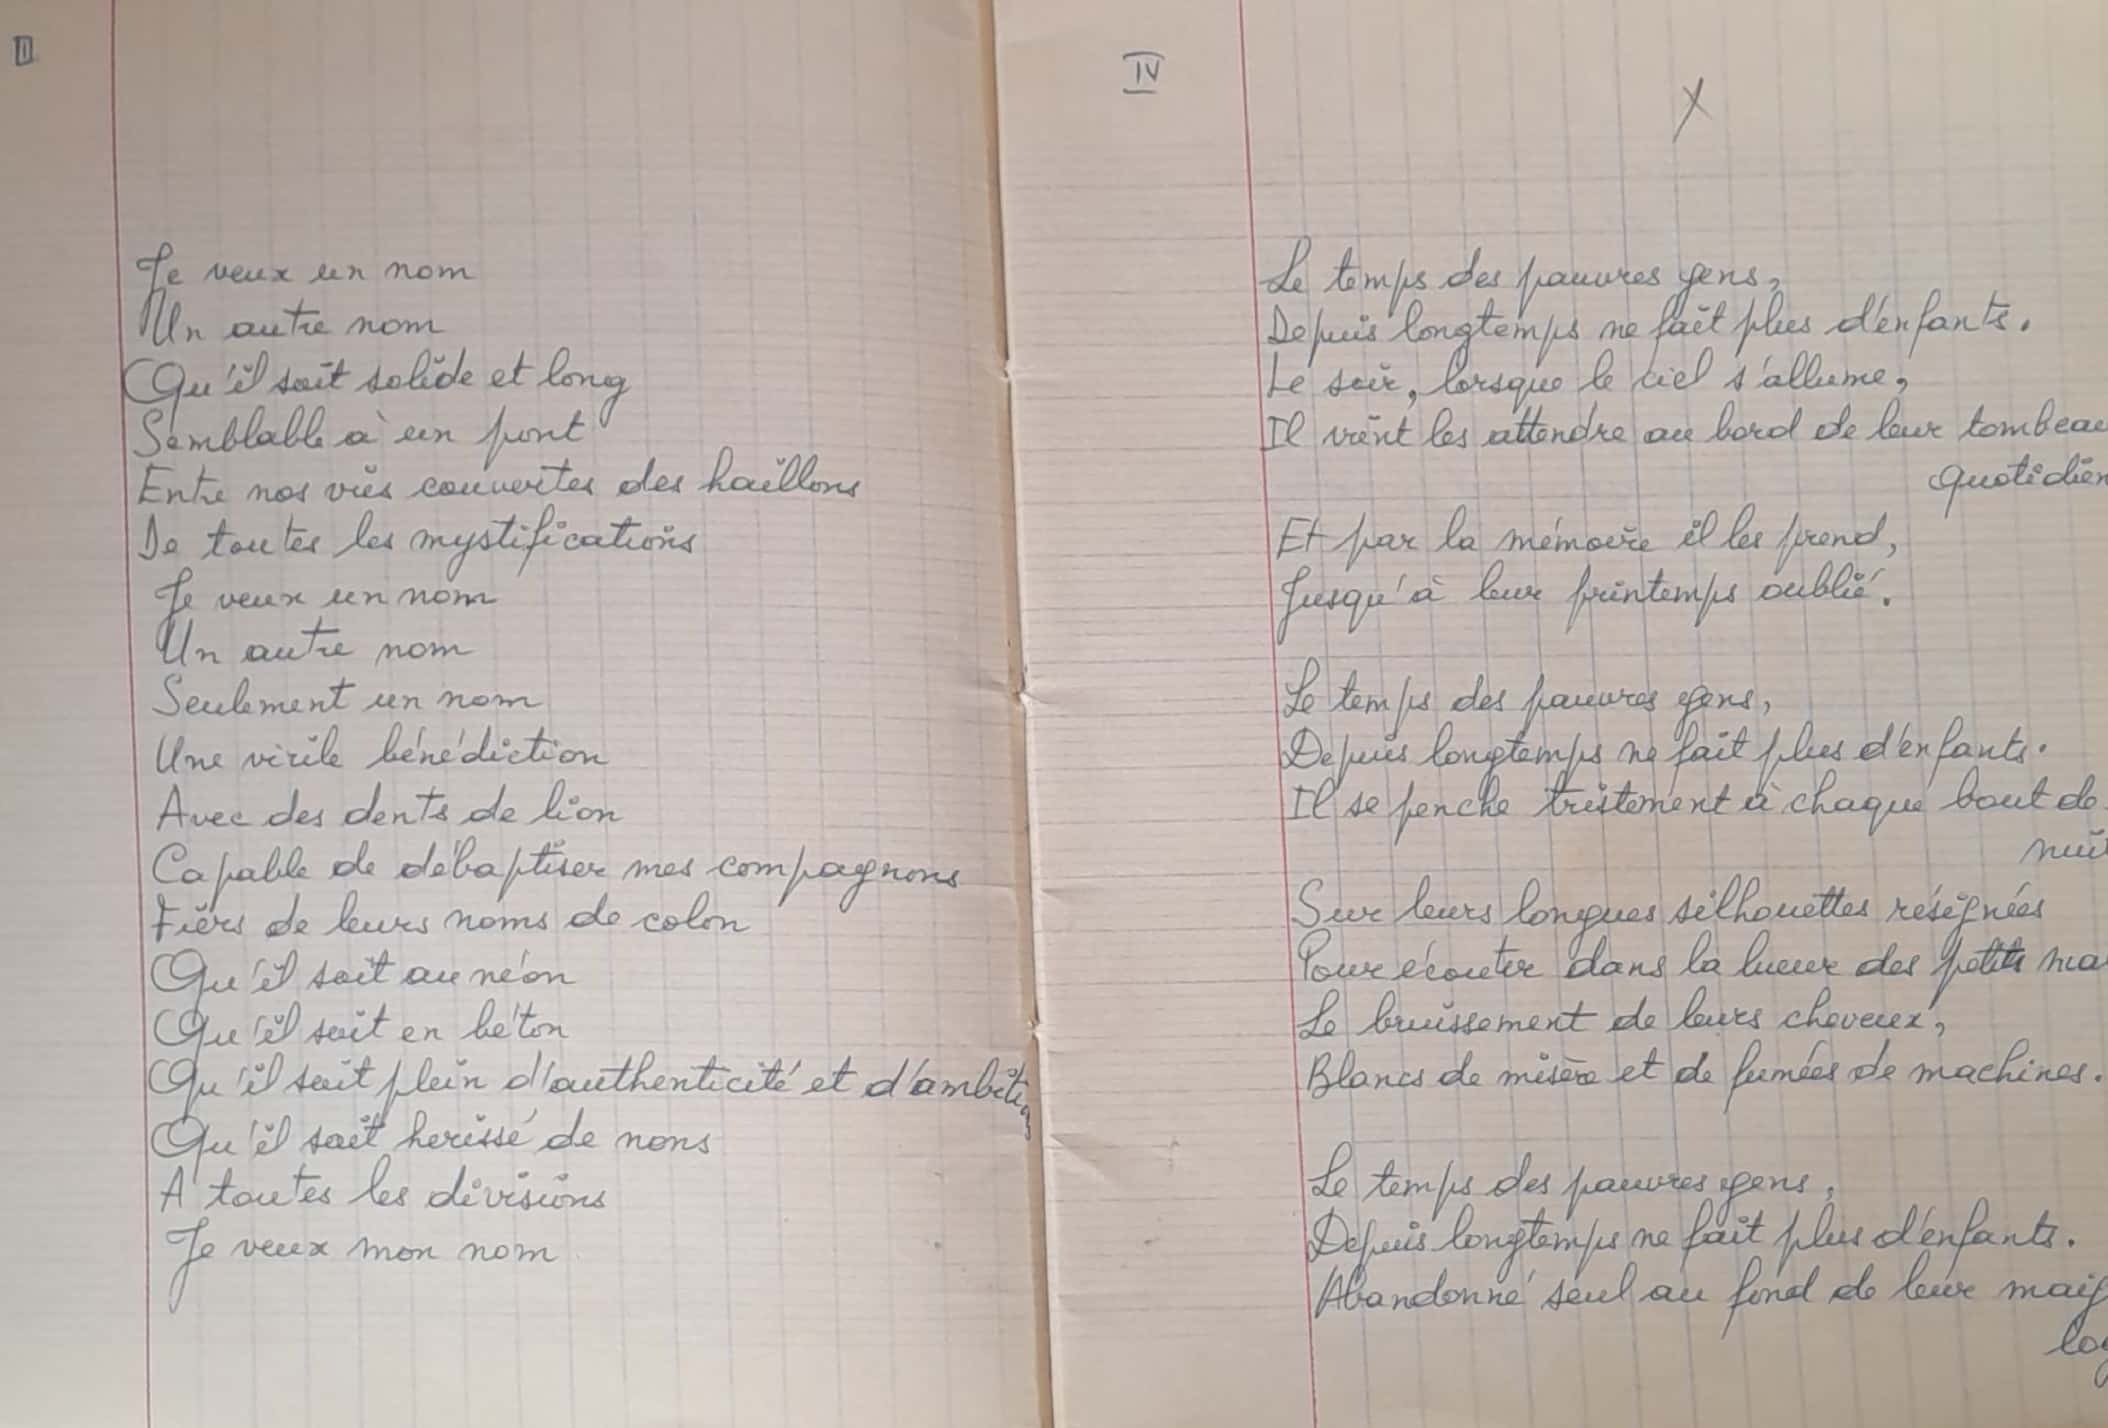 Je veux un nom
Un autre nom
Qu'il soit solide et long
Semblable à un pont
Entre nos vies couvertes des haillons
De toutes les mystifications
Je veux un nom
Un autre nom
Seulement un nom
Une virile bénédiction
Avec des dents de lion
Capable de débaptiser mes compagnons
Fiers de leurs noms de colon
Qu'il soit au néon
Qu'il soit en béton
Qu'il soit plein d'authenticité et d'ambitions
Qu'il soit herissé de nons
A toutes les divisions
Je veux mon nom
IV
X
Le temps des pauvres gens,
Depuis longtemps ne fait plus d'enfants.
Le soir, lorsque le ciel s'allume,
Il vient les attendre au bord de leur tombeau
quotidien
Et par la mémoire il les prend,
Jusqu'à leur printemps oublié.
Le temps des pauvres gens,
Depuis longtemps ne fait plus d'enfants.
Il se penche tristement à chaque bout de
nuit
Sur leurs longues silhouettes résignées
Pour écouter dans la lueur des petits
Le bruissement de leurs cheveux,
Blancs de misère et de fumées de machines.
Le temps des pauvres gens,
Depuis longtemps ne fait plus d'enfants.
Abandonné seul au fond de leur